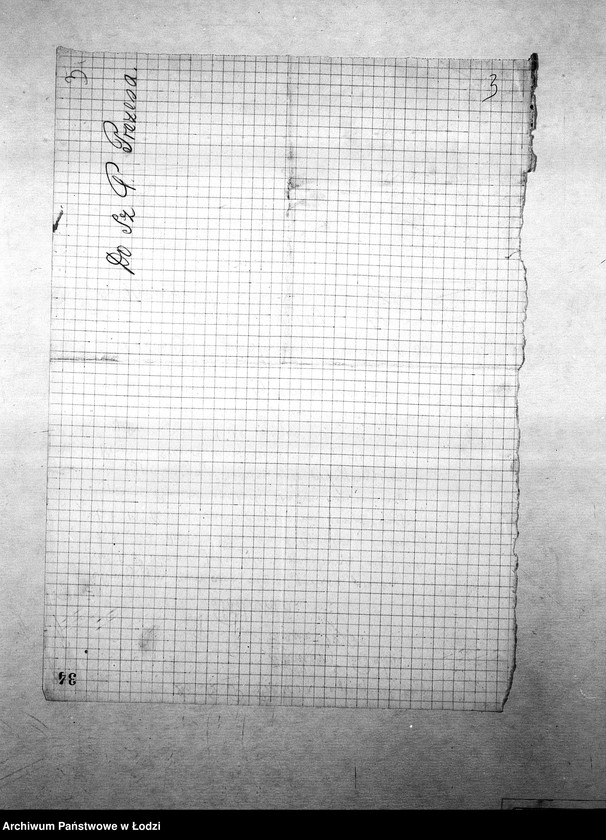 3
3
Do Sz P Prezesa.
34
Archiwum Państwowe w Łodzi